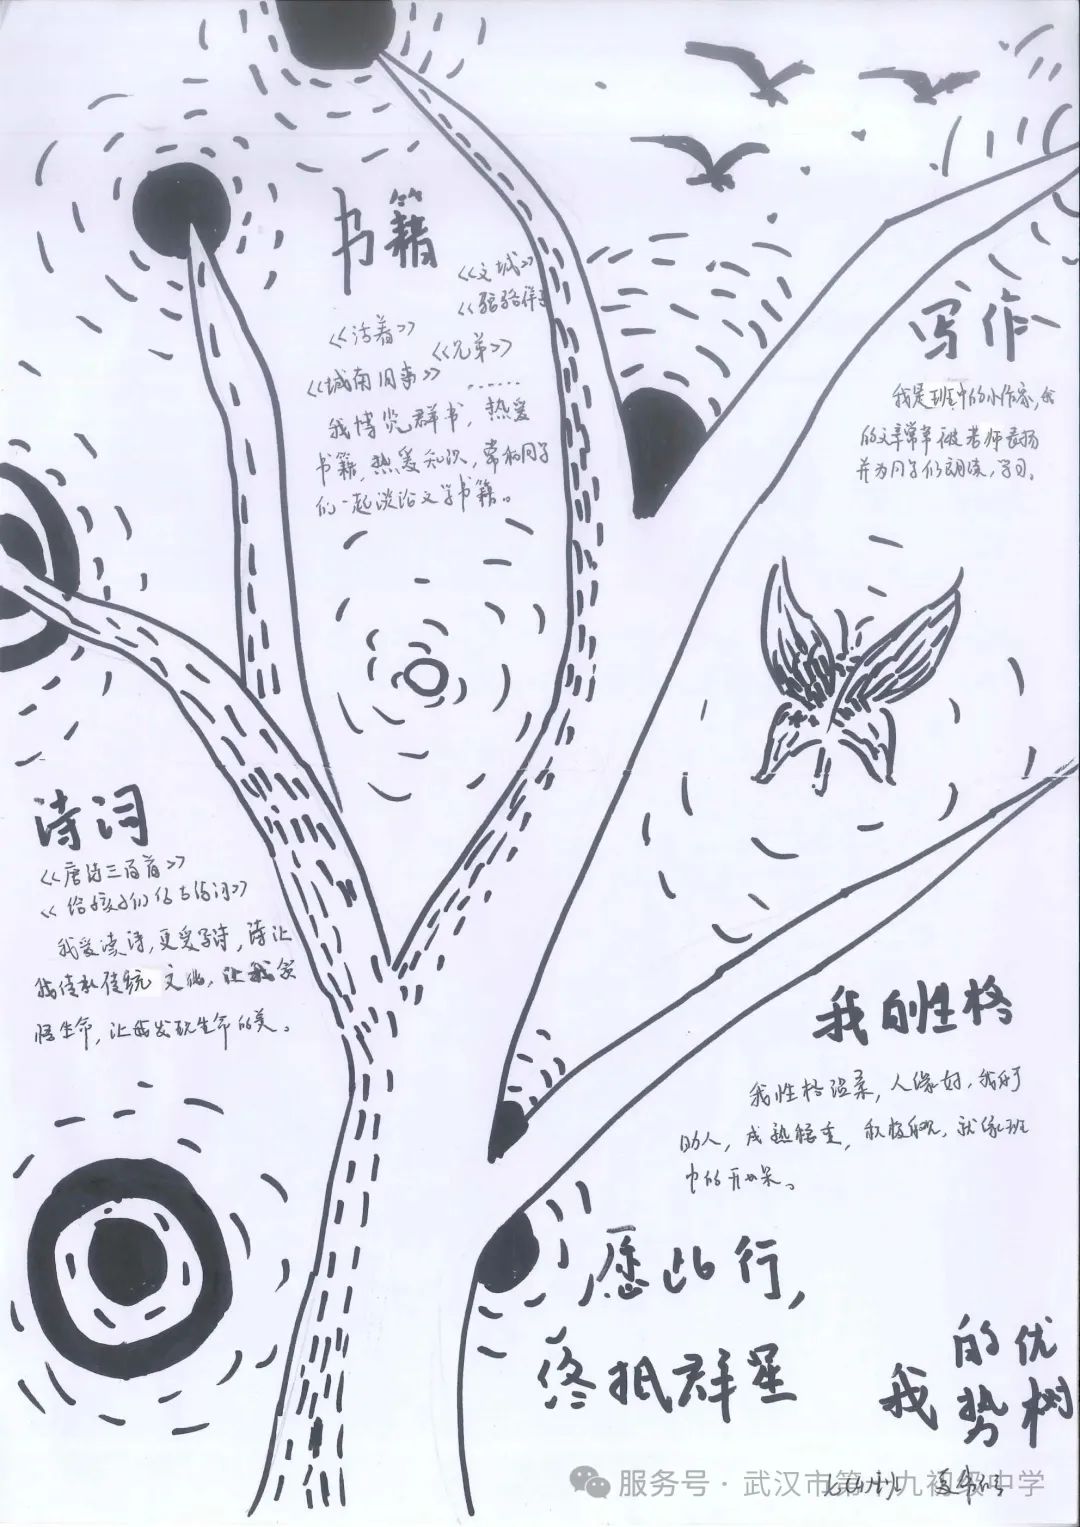 书籍
《文城》
《骆驼祥子
《活着》
《兄弟》
《城南旧事》
……
我博览群书，热爱
书籍，热爱知识，常和同学
们一起谈论文学书籍。
写作
我是班中的小作家，我
的文章常常被老师表扬
并为同学们朗读，学习。
诗词
《唐诗三百首》
《给孩子们的古诗词》
我爱读诗，更爱写诗，诗让
我传承传统文化，让我感
悟生命，让我发现生命的美。
我的性格
我性格温柔，人缘好，我乐于
助人，成熟稳重，积极乐观，就像班
中的开心果。
愿此行，
终抵群星
我的优势树
服务号·武汉市第十九初级中学